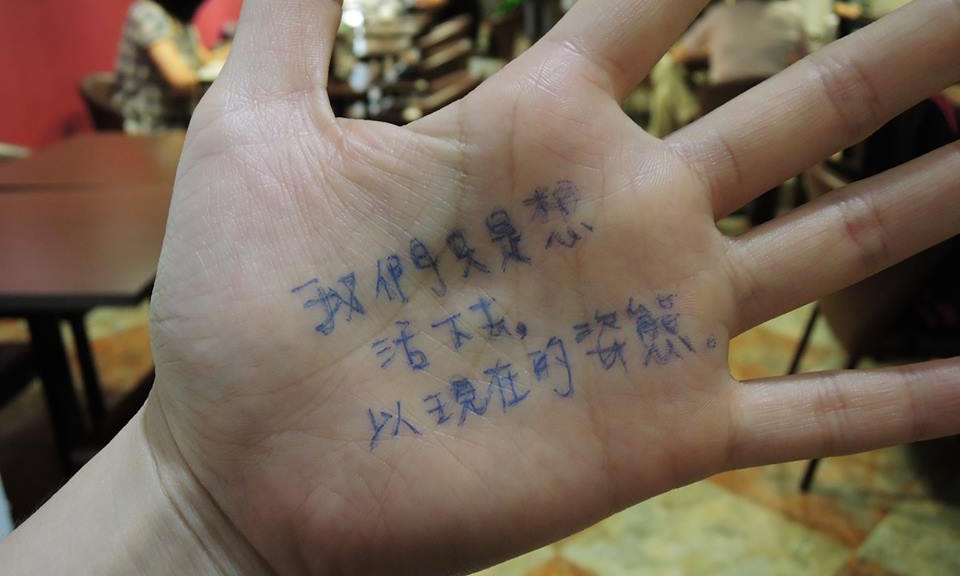 我們只是想
活下去,
以現在的姿態。